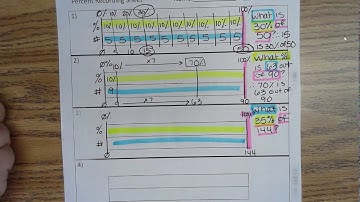 Percent Recording Sheet
1)
0% 10% 20% 30% 100%
% 10% 10% 10% 10% 10% 10% 10% 10% 10%
# 5 5 5 5 5 5 5 5 5 5
0 5 10 15 50
What is
30% of
50? 15
is 30% of 50
2)
0% 10% x7 70% 100%
% 10%
# 9
0 9 x7 63 90
What %
is 63 out
of 90?
70% is
63 out of
90
3)
0% 100%
%
#
0 144
What is
35% of
144?
4)